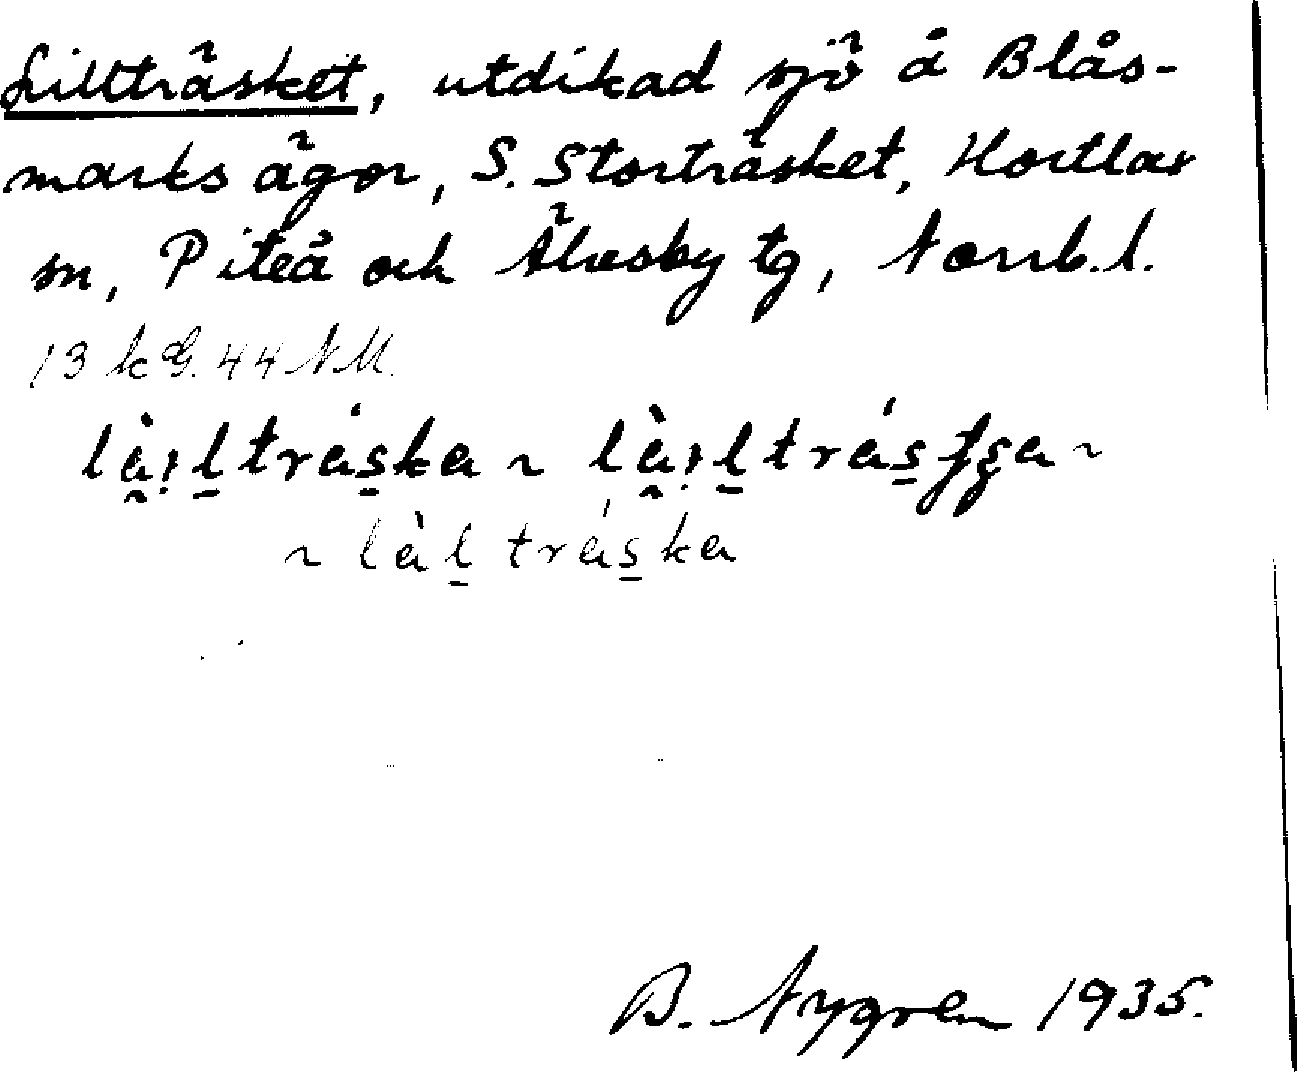 Lillträsket, utdikad sjö å Blås-
marks ägor, S. Storträsket, Hortlax
sn, Piteå och Älvsby tg, Norrb.l.
13 k G. 44 NM.
là̰iḻtráska ~ là̰iḻtrás̱ʃga ~
~ làḻ trás̱ka
B. Nygren 1935.